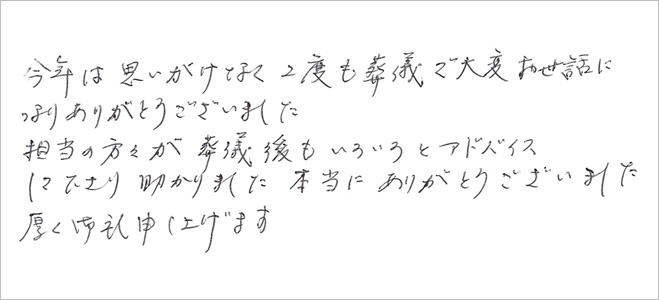 今年は思いがけなく2度も葬儀で大変お世話に
なりありがとうございました
担当の方々が葬儀後もいろいろとアドバイス
して下さり助かりました 本当にありがとうございました
厚く御礼申し上げます